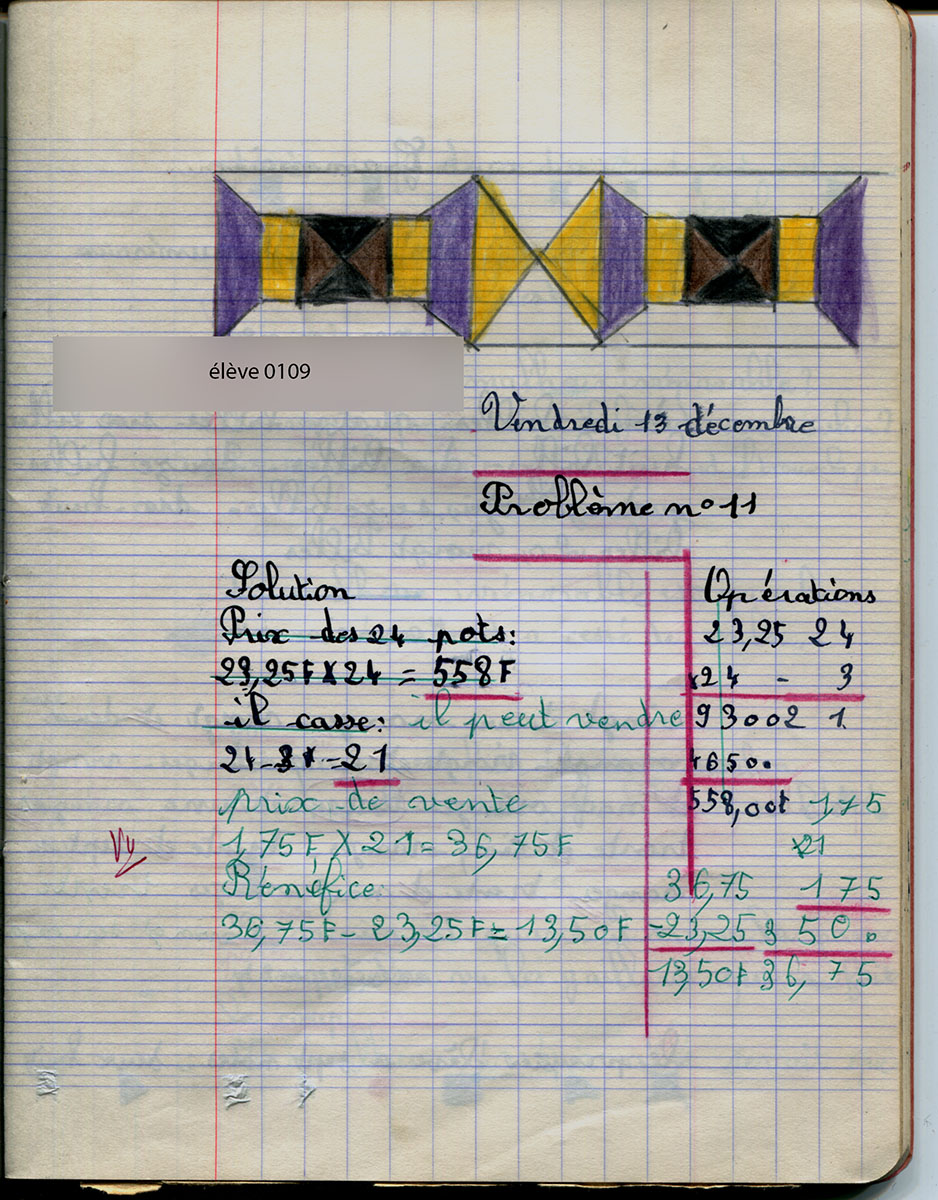 élève 0109
Vendredi 13 décembre
Problème n° 11
Solution
Prix des 24 pots:
23,25F x 24 = 558F
il casse: il peut vendre
24 - 3 = 21
prix de vente
1,75F x 21 = 36,75F
Bénéfice:
36,75F - 23,25F = 13,50F
Vu
Opérations
23,25 24
x24 - 3
9300 2 1
4650.
558,00F 1,75
x21
36,75 175
-23,25 350.
13,50F 36,75